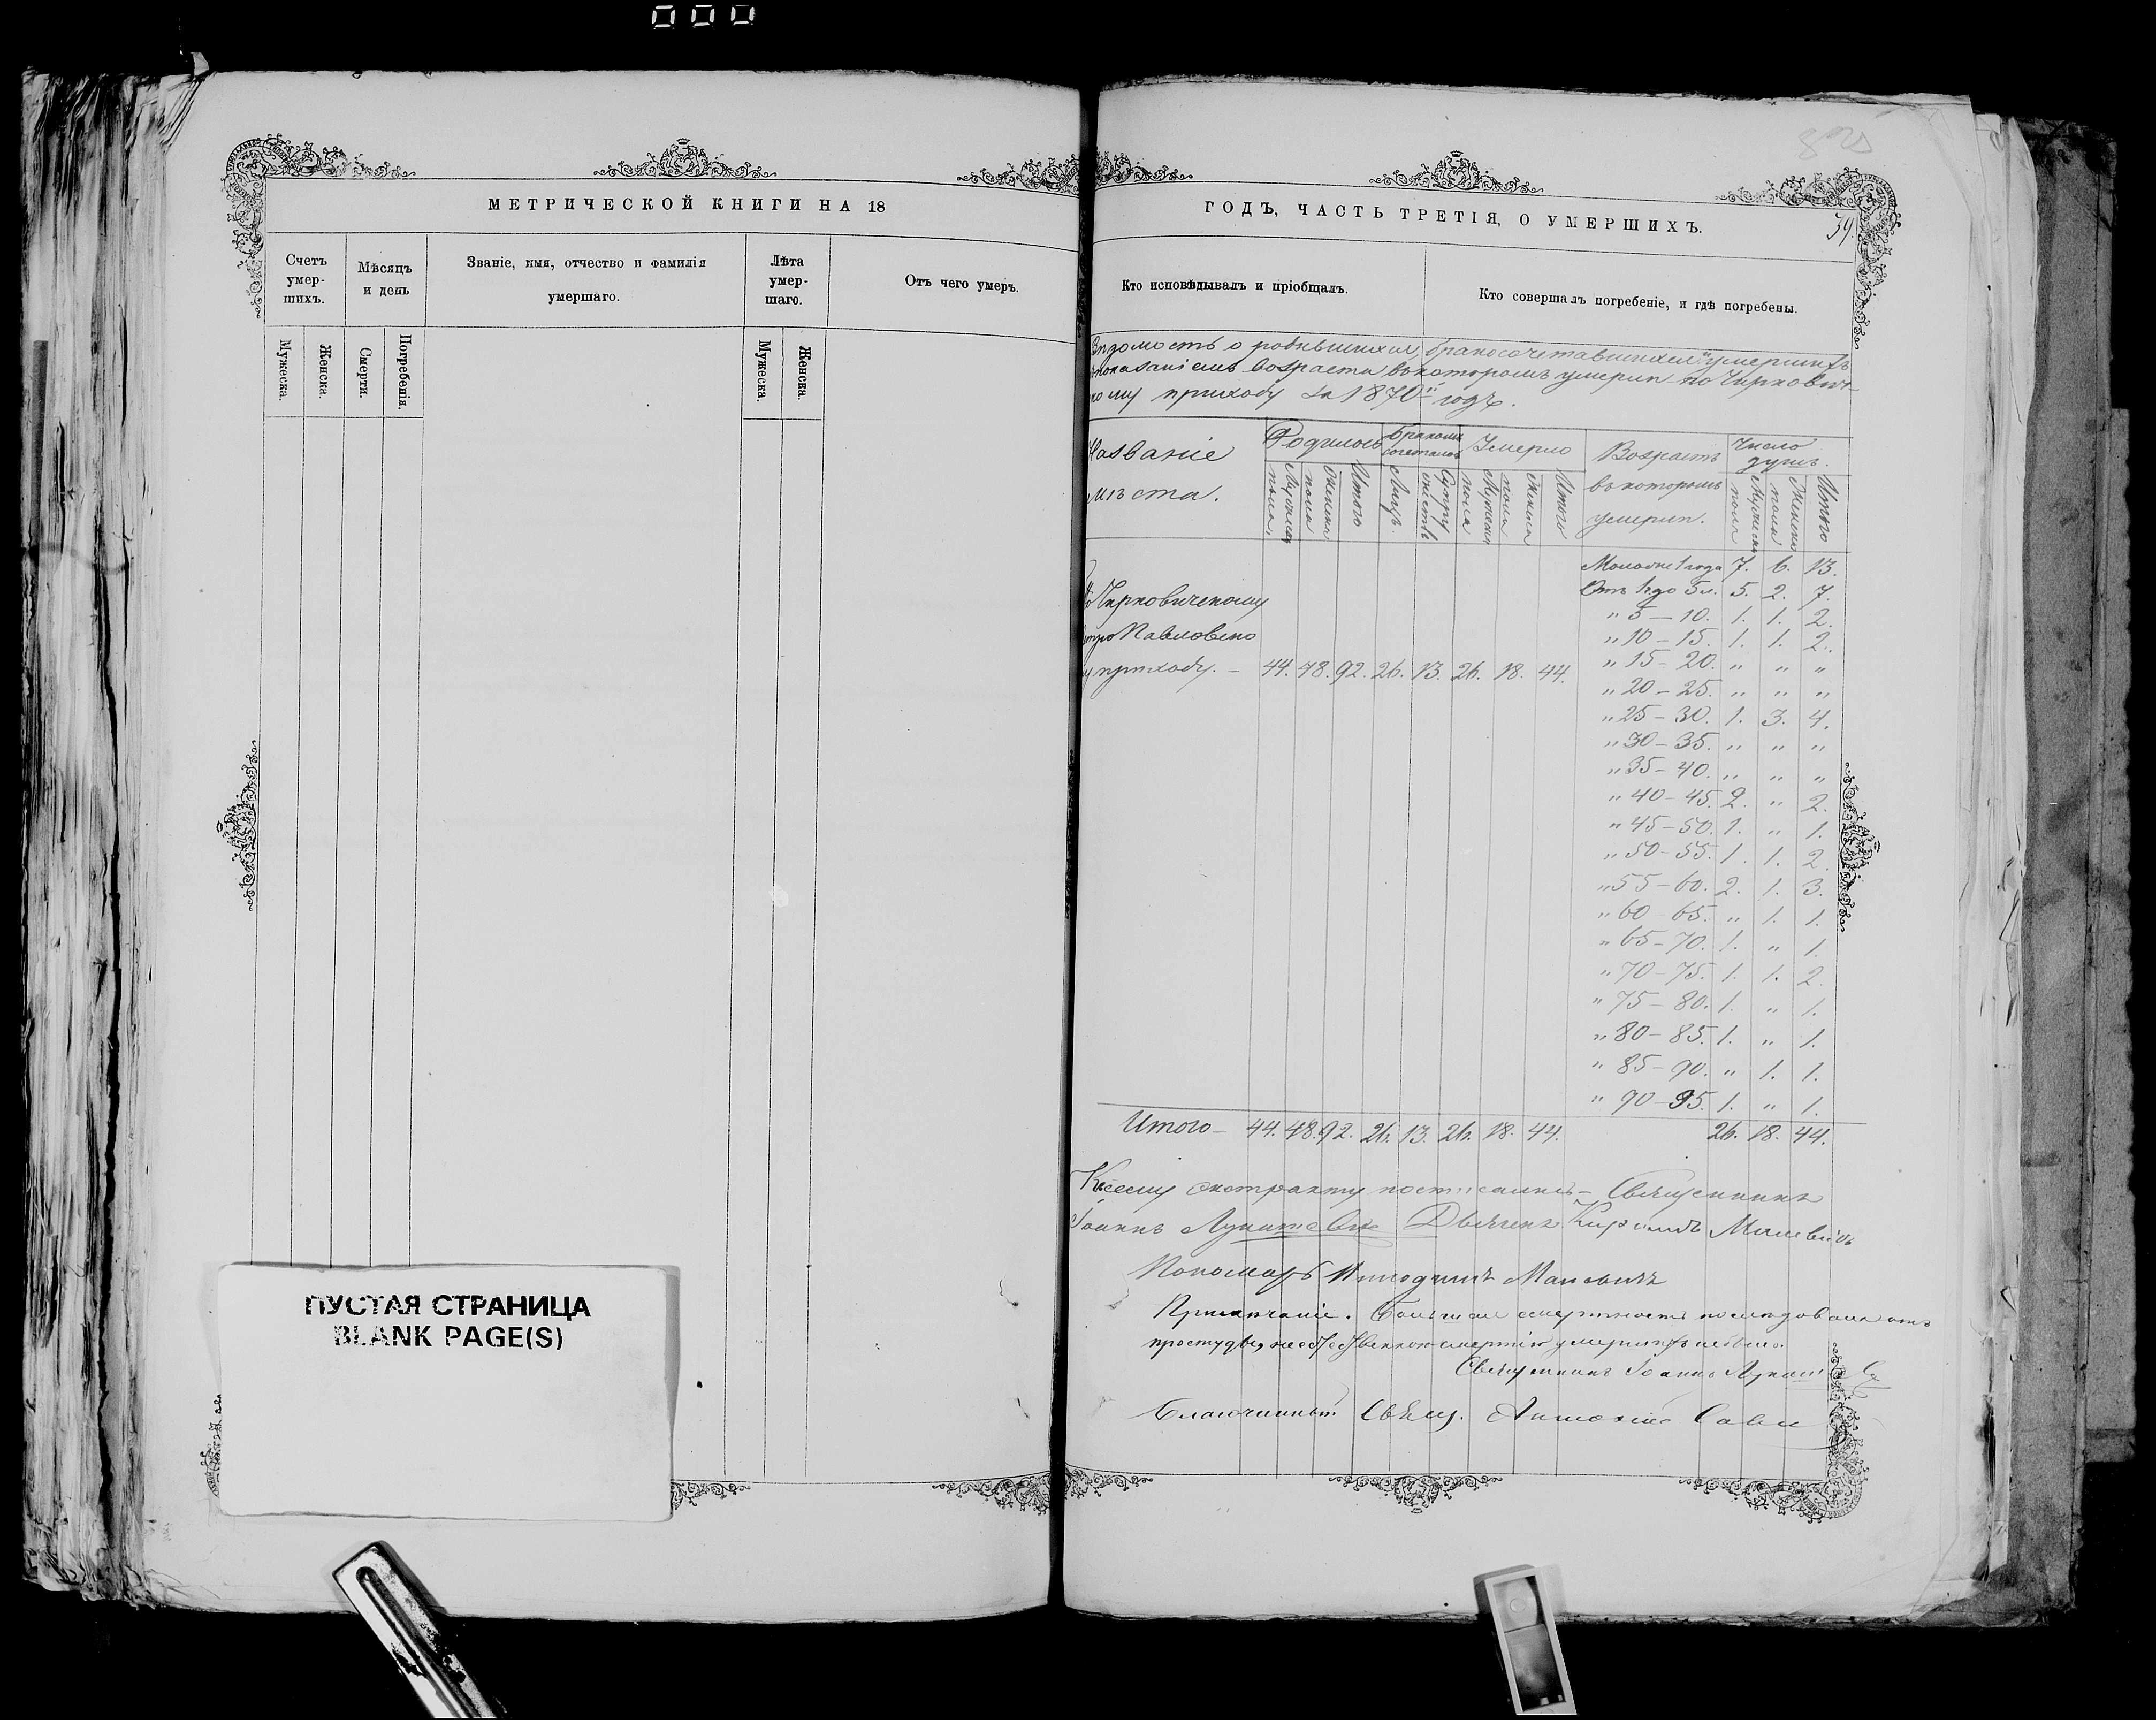 МЕТРИЧЕСКОЙ КНИГИ НА 18
Счетъ умер-шихъ.
Мѣсяцъ и день
Званіе, имя, отчество и фамилія умершаго.
Лѣта умер-шаго.
Отъ чего умеръ.
Мужеска.
Женска.
Смерти.
Погребенія.
Мужеска.
Женска.
ПУСТАЯ СТРАНИЦА
BLANK PAGE(S)
ГОДЪ, ЧАСТЬ ТРЕТІЯ, О УМЕРШИХЪ.
39.
Кто исповѣдывалъ и пріобщалъ.
Кто совершалъ погребеніе, и гдѣ погребены.
Вѣдомость о родившихся, бракосочетавшихся и умершихъ
показаніемъ возраста въ которомъ умерли по Чирковичс-
кому приходу за 1870й годъ.
Названіе мѣста.
Родилось
Бракомъ сочеталось
Умерло
Возрастъ въ которомъ умерли.
Число душъ.
Мужеска пола
Женска пола
Итого
Лицъ.
Супружествъ
Мужеска пола
Женска пола
Итого
Мужеска пола
Женска пола
Итого
Моложе 1 года 7. 6. 13.
Отъ 1 до 5 л. 5. 2. 7.
Чирковичскому
" 5 – 10. 1. 1. 2.
Павловско
" 10 – 15. 1. 1. 2.
приходу. – 44. 48. 92. 26. 13. 26. 18. 44.
" 15 – 20. " " "
" 20 – 25. " " "
" 25 – 30. 1. 3. 4.
" 30 – 35. " " "
" 35 – 40. " " "
" 40 – 45. 2. " 2.
" 45 – 50. 1. " 1.
" 50 – 55. 1. 1. 2.
" 55 – 60. 2. 1. 3.
" 60 – 65. " 1. 1.
" 65 – 70. 1. " 1.
" 70 – 75. 1. 1. 2.
" 75 – 80. 1. " 1.
" 80 – 85. 1. " 1.
" 85 – 90. " 1. 1.
" 90 – 95. 1. " 1.
Итого – 44. 48. 92. 26. 13. 26. 18. 44. 26. 18. 44.
Къ сему экстракту подписались – Священникъ
Іоаннъ Лукашевичъ Дьячекъ
Пономарь
Примѣчаніе. Большая смертность последовала отъ
простуды,
Священникъ Іоаннъ
Благочинный Свящ. Антоній